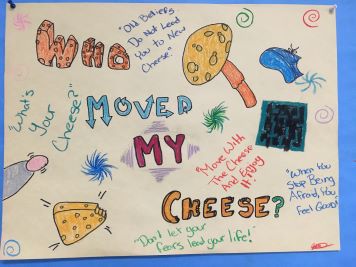 "Old Beliefs
Do Not Lead
You to New
Cheese."
WHO
"What's
Your
Cheese?"
MOVED
MY
"Move With
The Cheese
And Enjoy
It!"
CHEESE?
"When You
Stop Being
Afraid, You
Feel Good!"
"Don't let your
fears lead your life!"